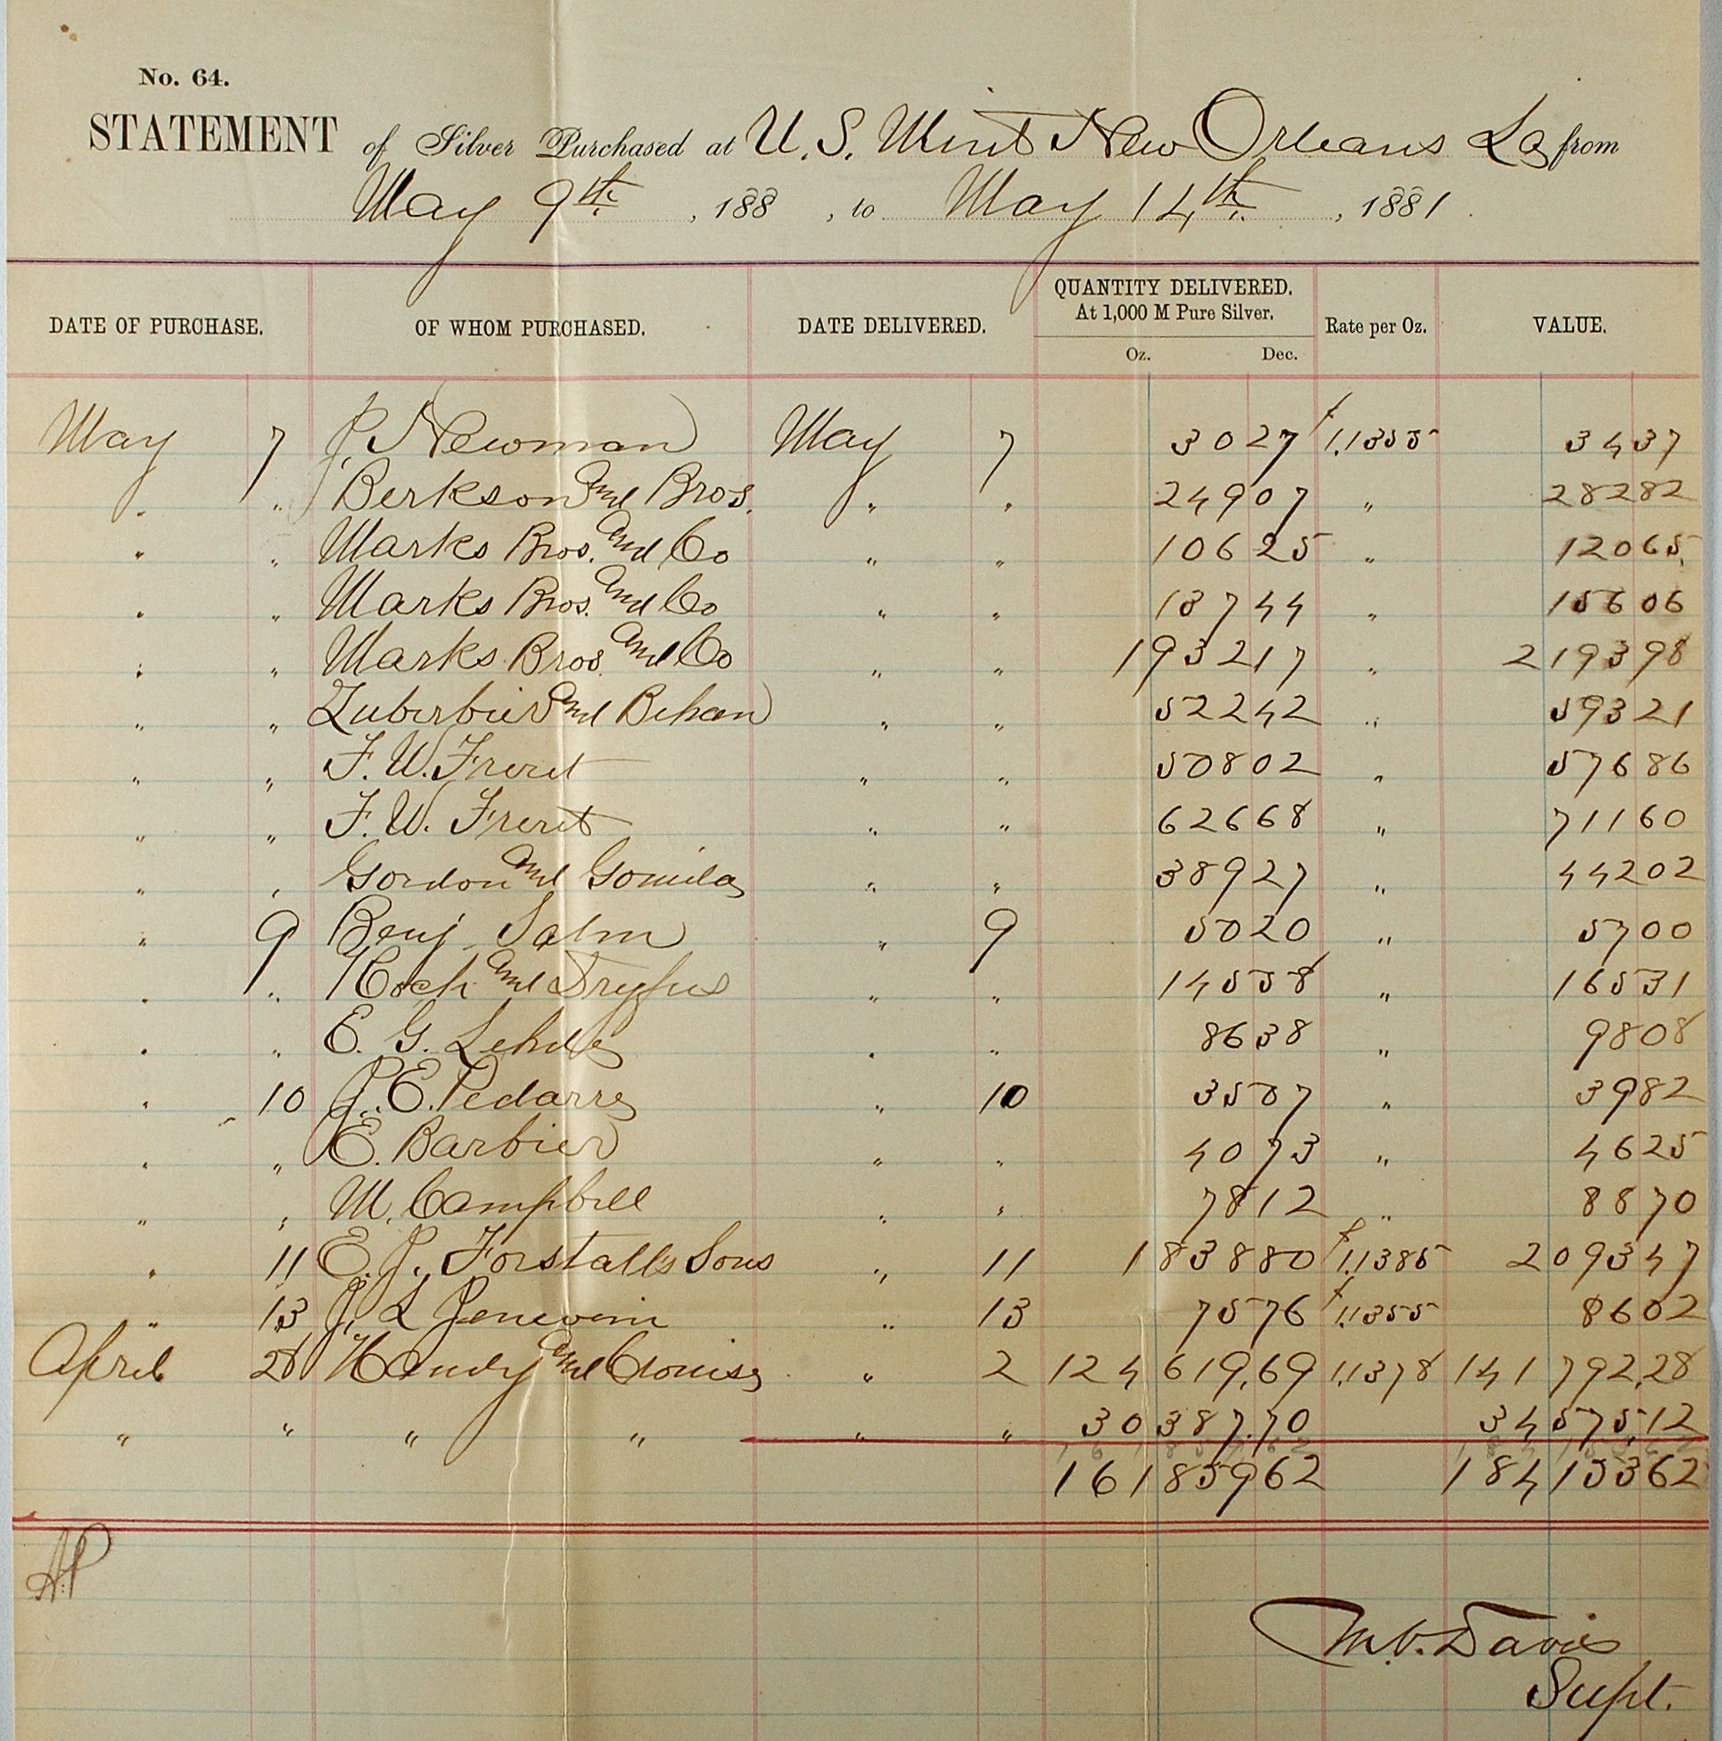 No. 64.
STATEMENT of Silver Purchased at U.S. Mint New Orleans La from
May 9th. , 188 , to May 14th. , 1881.
DATE OF PURCHASE. OF WHOM PURCHASED. DATE DELIVERED. QUANTITY DELIVERED. At 1,000 M Pure Silver. Oz. Dec. Rate per Oz. VALUE.
May 7 J. Newman May 7 3027 1.1355 3437
" " Berkson and Bros. " " 24907 " 28282
" " Marks Bros. and Co " " 10625 " 12065
" " Marks Bros. and Co " " 13744 " 15606
" " Marks Bros. and Co " " 193217 " 219398
" " Zuberbier and Behan " " 52242 " 59321
" " F. W. Freret " " 50802 " 57686
" " F. W. Freret " " 62668 " 71160
" " Gordon and Gomila " " 38927 " 44202
" 9 Benj Salm " 9 5020 " 5700
" " Koch and Dryfus " " 14558 " 16531
" " E. G. Lehde " " 8638 " 9808
" 10 J. E. Pedarre " 10 3507 " 3982
" " E. Barbier " " 4073 " 4625
" " M. Campbell " " 7812 " 8870
" 11 E. J. Forstall's Sons " 11 183880 1.1385 209347
" 13 J. L. " 13 7576 1.1355 8602
April 28 Handy and " 2 124619.69 1.1378 141792.28
" " " " " " 30387.70 34575.12
16185962 18415362
AP
M. V. Davis
Supt.